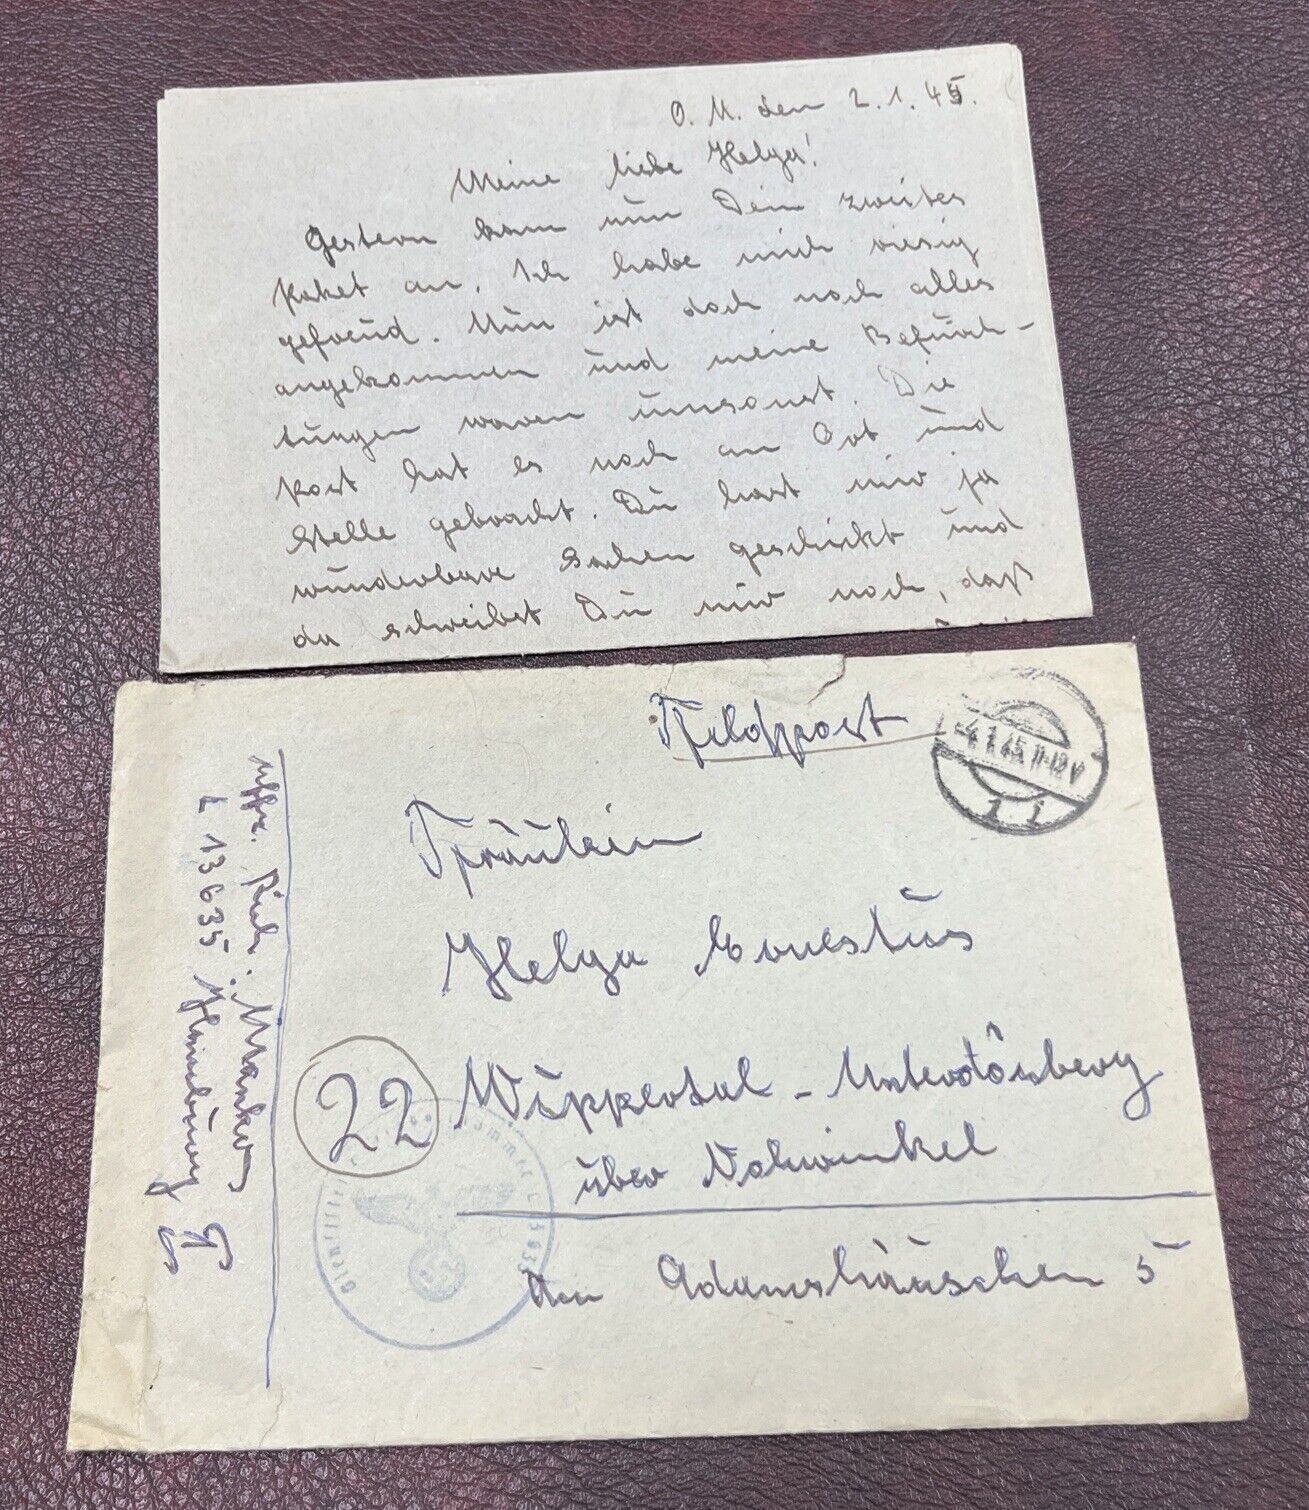 O. M. den 2.1.45.
Meine liebe Helga!
Gestern kam nun Dein zweites
Paket an. Ich habe mich riesig
gefreud. Nun ist doch noch alles
angekommen und meine Befürch-
tungen waren umsonst. Die
Post hat es noch an Ort und
Stelle gebracht. Du hast mir ja
wunderbare Sachen geschickt und
da schreibst Du mir noch, daß
Feldpost
-4.1.45.11-12 V
Fräulein
Helga
22 Wuppertal-
über Vohwinkel
Am Adamshäuschen 5
Uffz. Rich.
L 13635 Hamburg 1